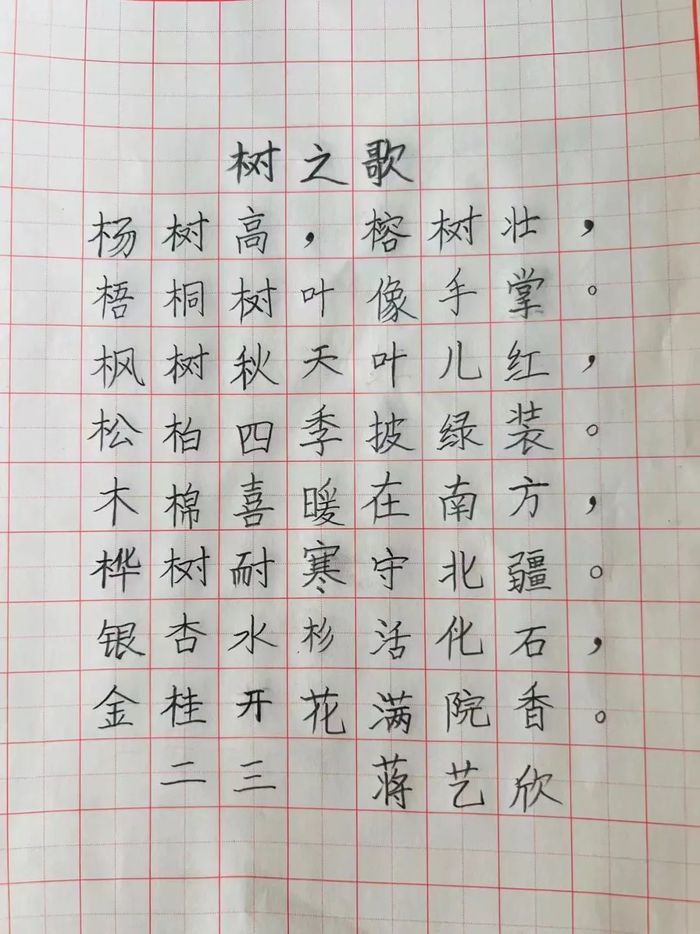 树之歌
杨树高，榕树壮，
梧桐树叶像手掌。
枫树秋天叶儿红，
松柏四季披绿装。
木棉喜暖在南方，
桦树耐寒守北疆。
银杏水杉活化石，
金桂开花满院香。
二三 蒋艺欣